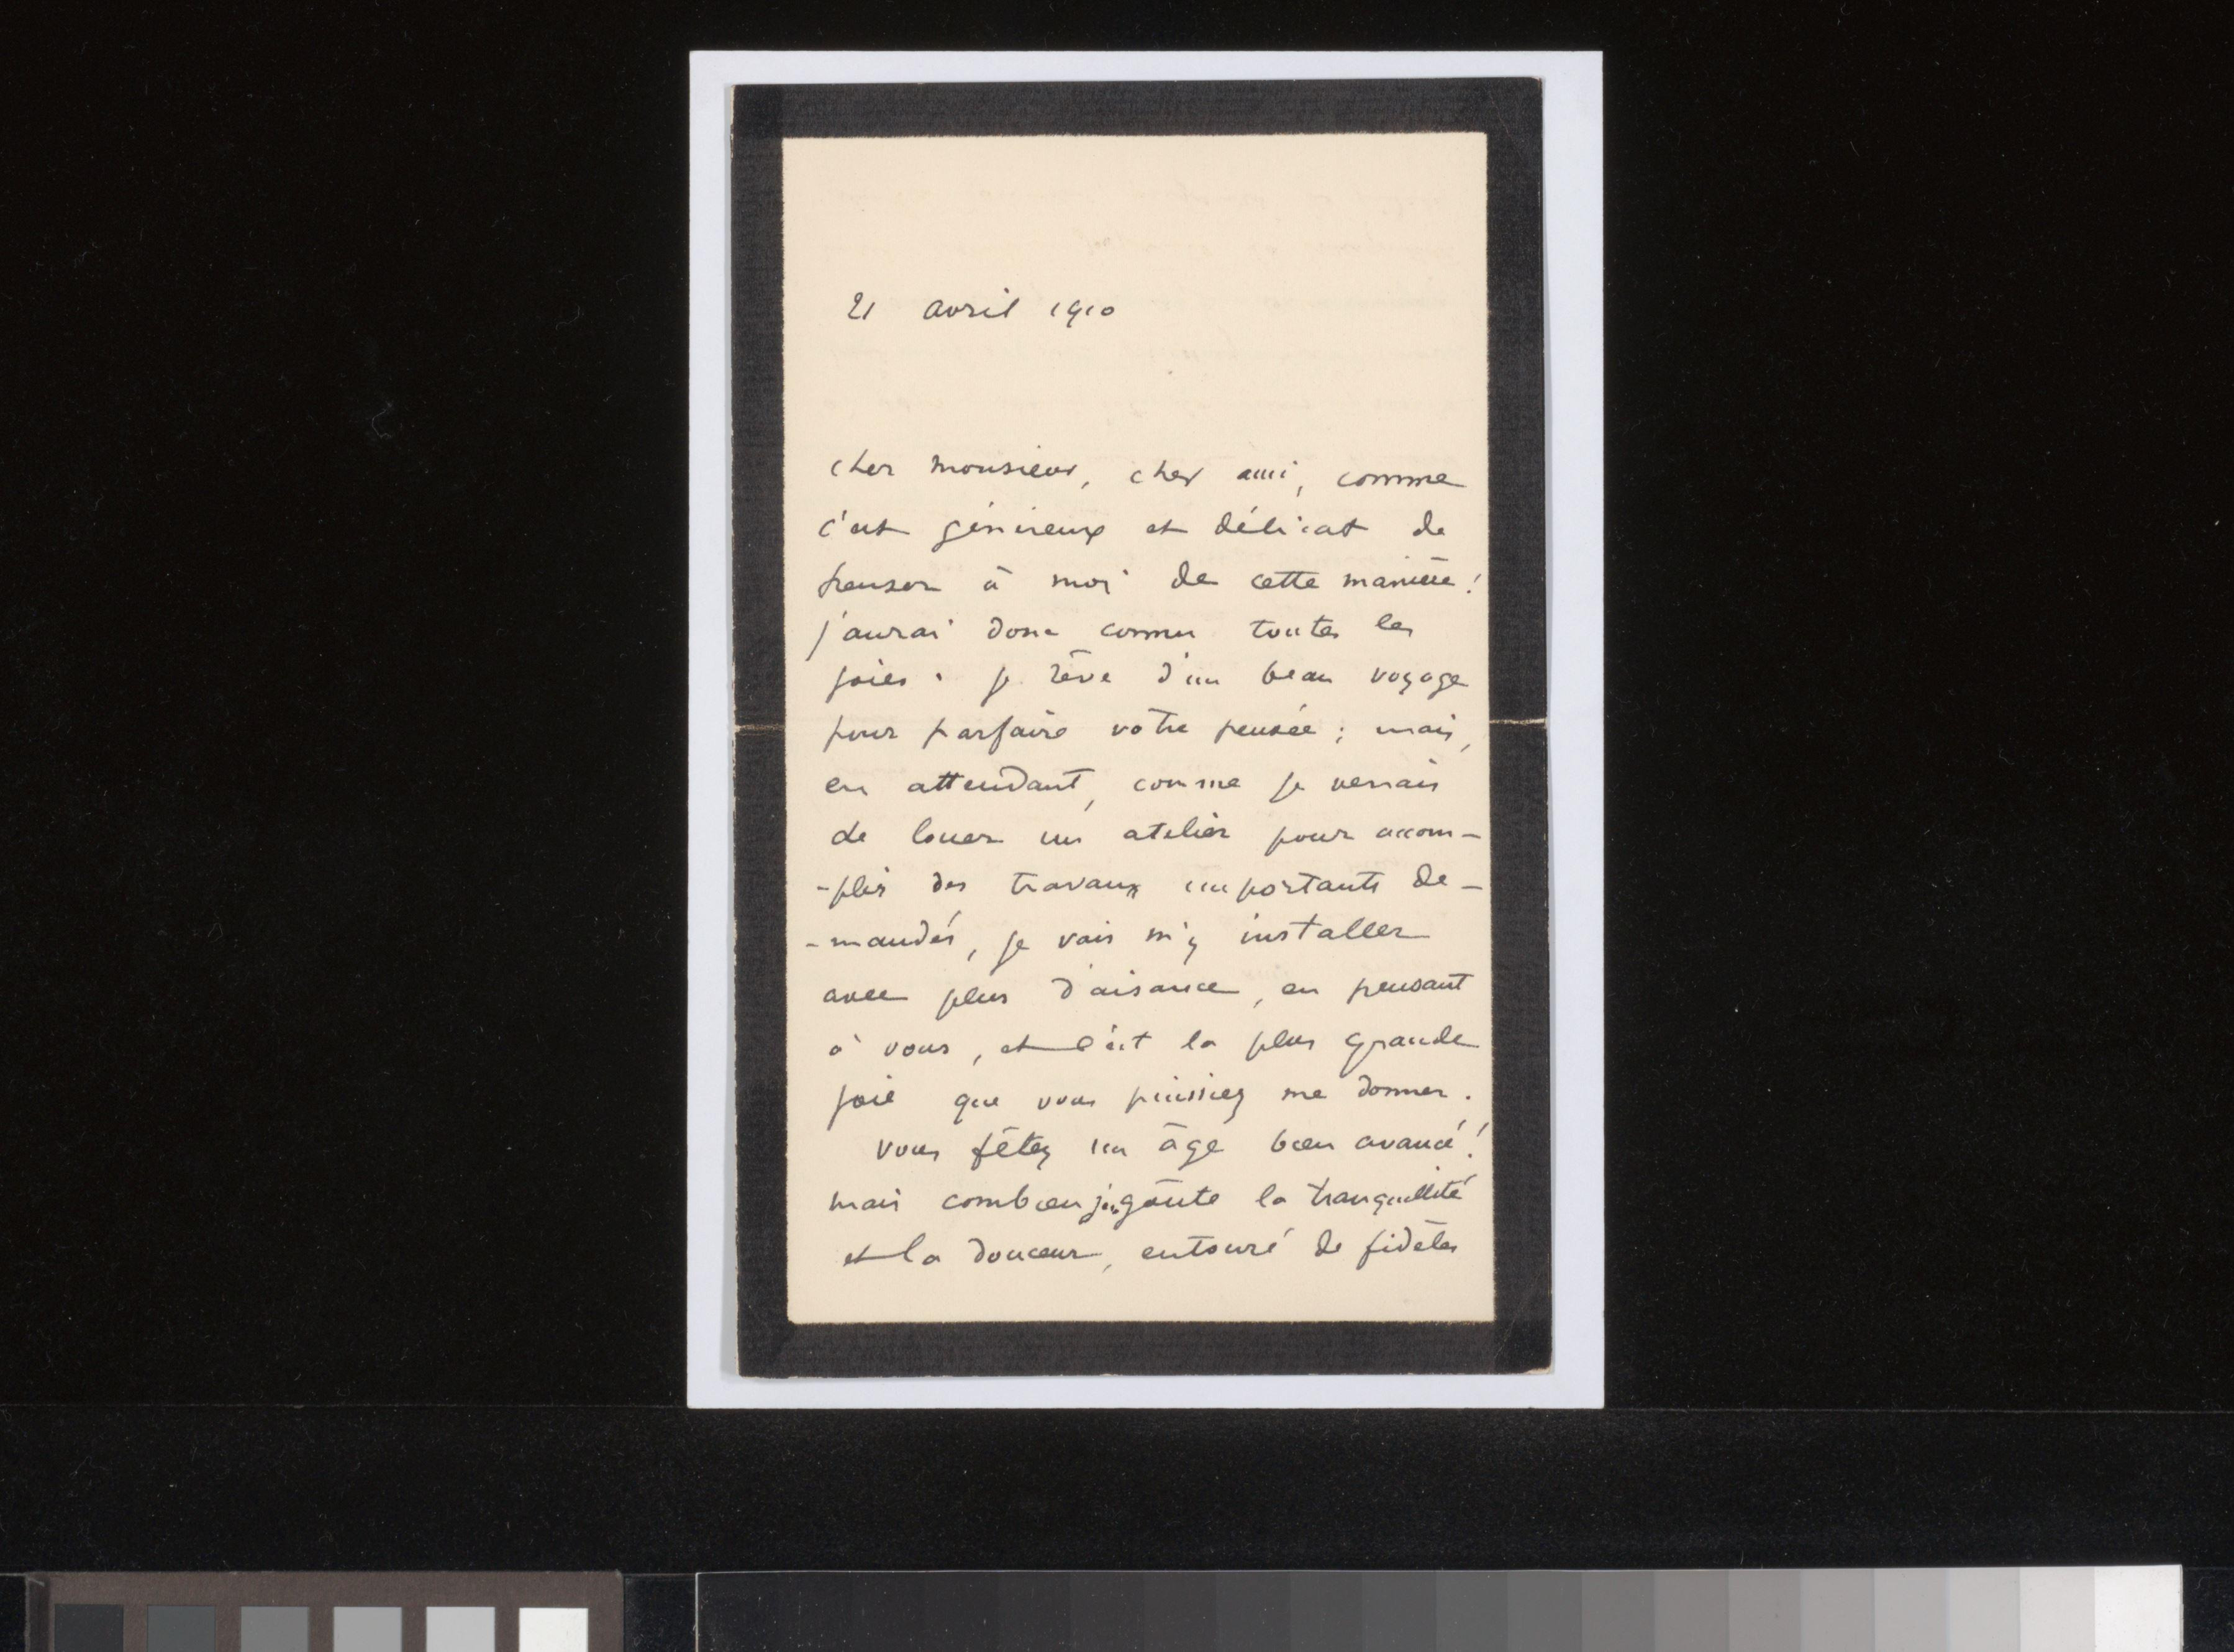 21 avril 1910
cher monsieur, cher ami, comme
c'est généreux et délicat de
penser à moi de cette manière !
j'aurai donc connu toutes les
joies. je rêve d'un beau voyage
pour parfaire votre pensée ; mais,
en attendant, comme je venais
de louer un atelier pour accom-
-plir des travaux importants de-
-mandés, je vais m'y installer
avec plus d'aisance, en pensant
à vous, et c'est la plus grande
joie que vous puissiez me donner.
vous fêtez un âge bien avancé !
mais combien j'en goûte la tranquillité
et la douceur, entouré de fidèles